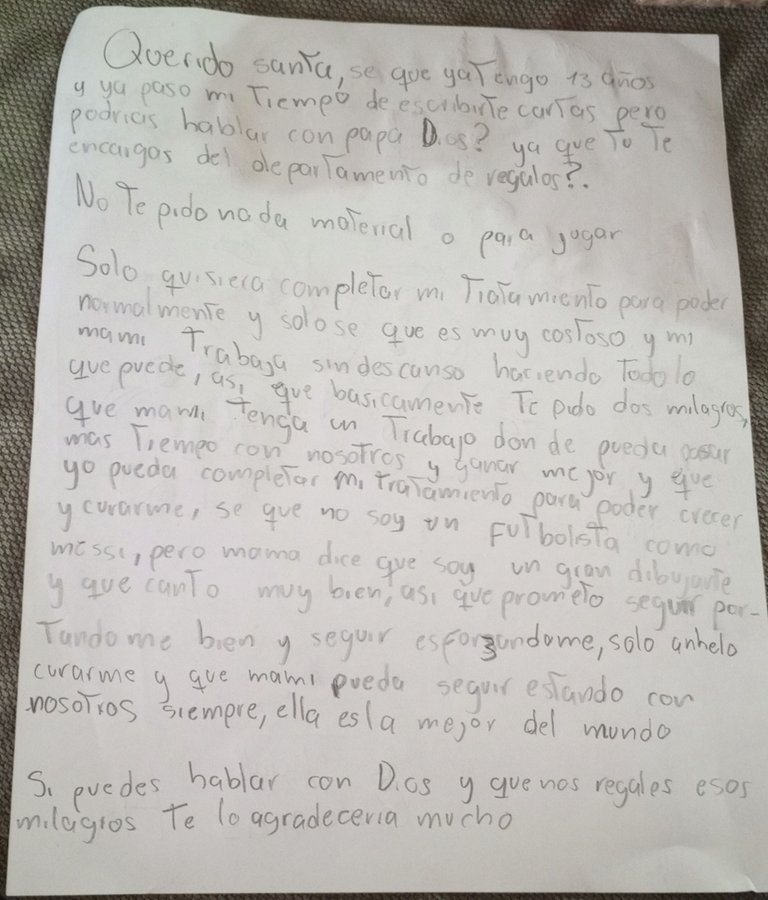 Querido santa, se que ya Tengo 13 años
y ya paso mi Tiempo de escribirte cartas pero
podrias hablar con papa Dios? ya que Tu Te
encargas del departamento de regalos?.
No Te pido nada material o para jugar
Solo quisiera completar mi Tratamiento para poder
normalmente y solo se que es muy costoso y mi
mami Trabaja sin descanso haciendo Todo lo
que puede, asi que basicamente Te pido dos milagros,
que mami Tenga un Trabajo don de pueda pasar
mas Tiempo con nosotros y ganar mejor y que
yo pueda completar mi tratamiento para poder crecer
y curarme, se que no soy un Futbolista como
messi, pero mama dice que soy un gran dibujante
y que canto muy bien, asi que prometo seguir por-
Tandome bien y seguir esforzandome, solo anhelo
curarme y que mami pueda seguir estando con
nosotros siempre, ella es la mejor del mundo
Si puedes hablar con Dios y que nos regales esos
milagros Te lo agradeceria mucho